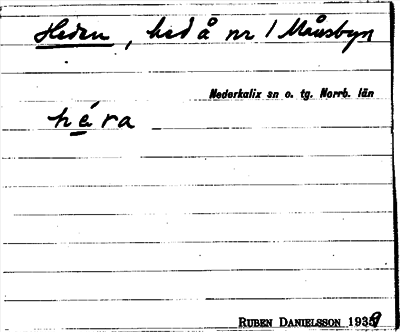 Heden, hed å nr 1 Månsbyn
Nederkalix sn o. tg. Norrb. län
hera
RUBEN DANIELSSON 1939